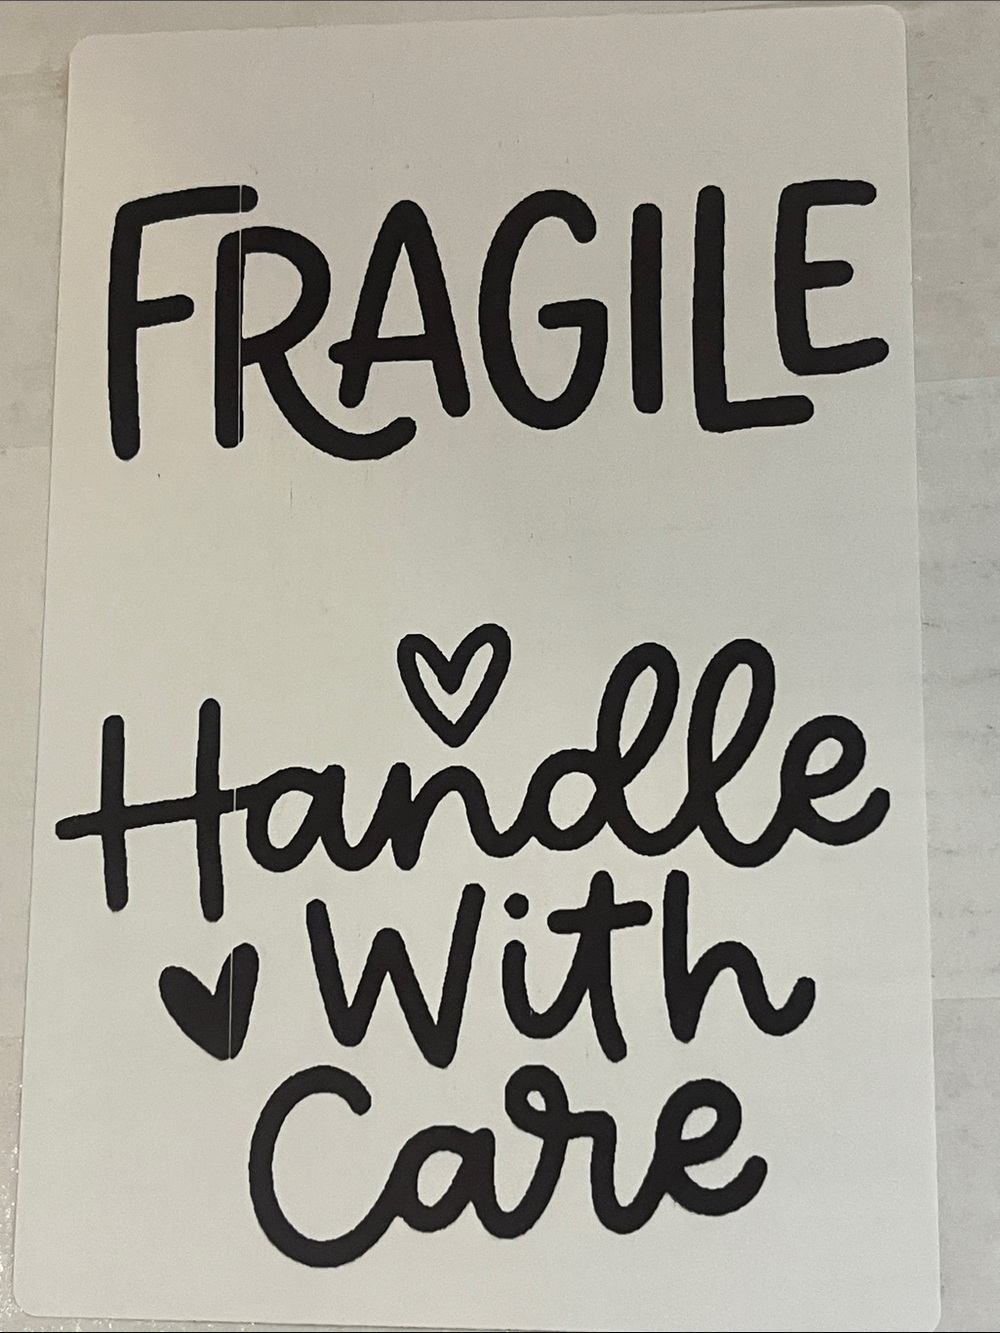 FRAGILE
Handle
With
Care